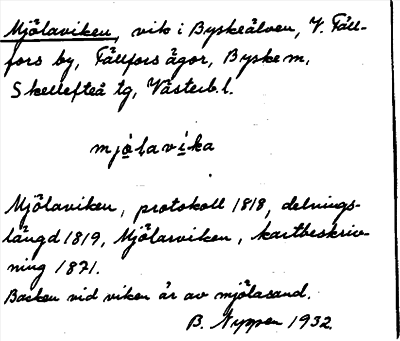 Mjölaviken, vik i Byskeälven, V. Fäll-
fors by, Fällfors ägor, Byske m,
Skellefteå tg, Västerb. l.
mjọ̈lavịka
Mjölaviken, protokoll 1818, delnings-
längd 1819, Mjölarviken, kartbeskriv-
ning 1871.
Backen vid viken är av mjölasand.
B. Nyppen 1932.